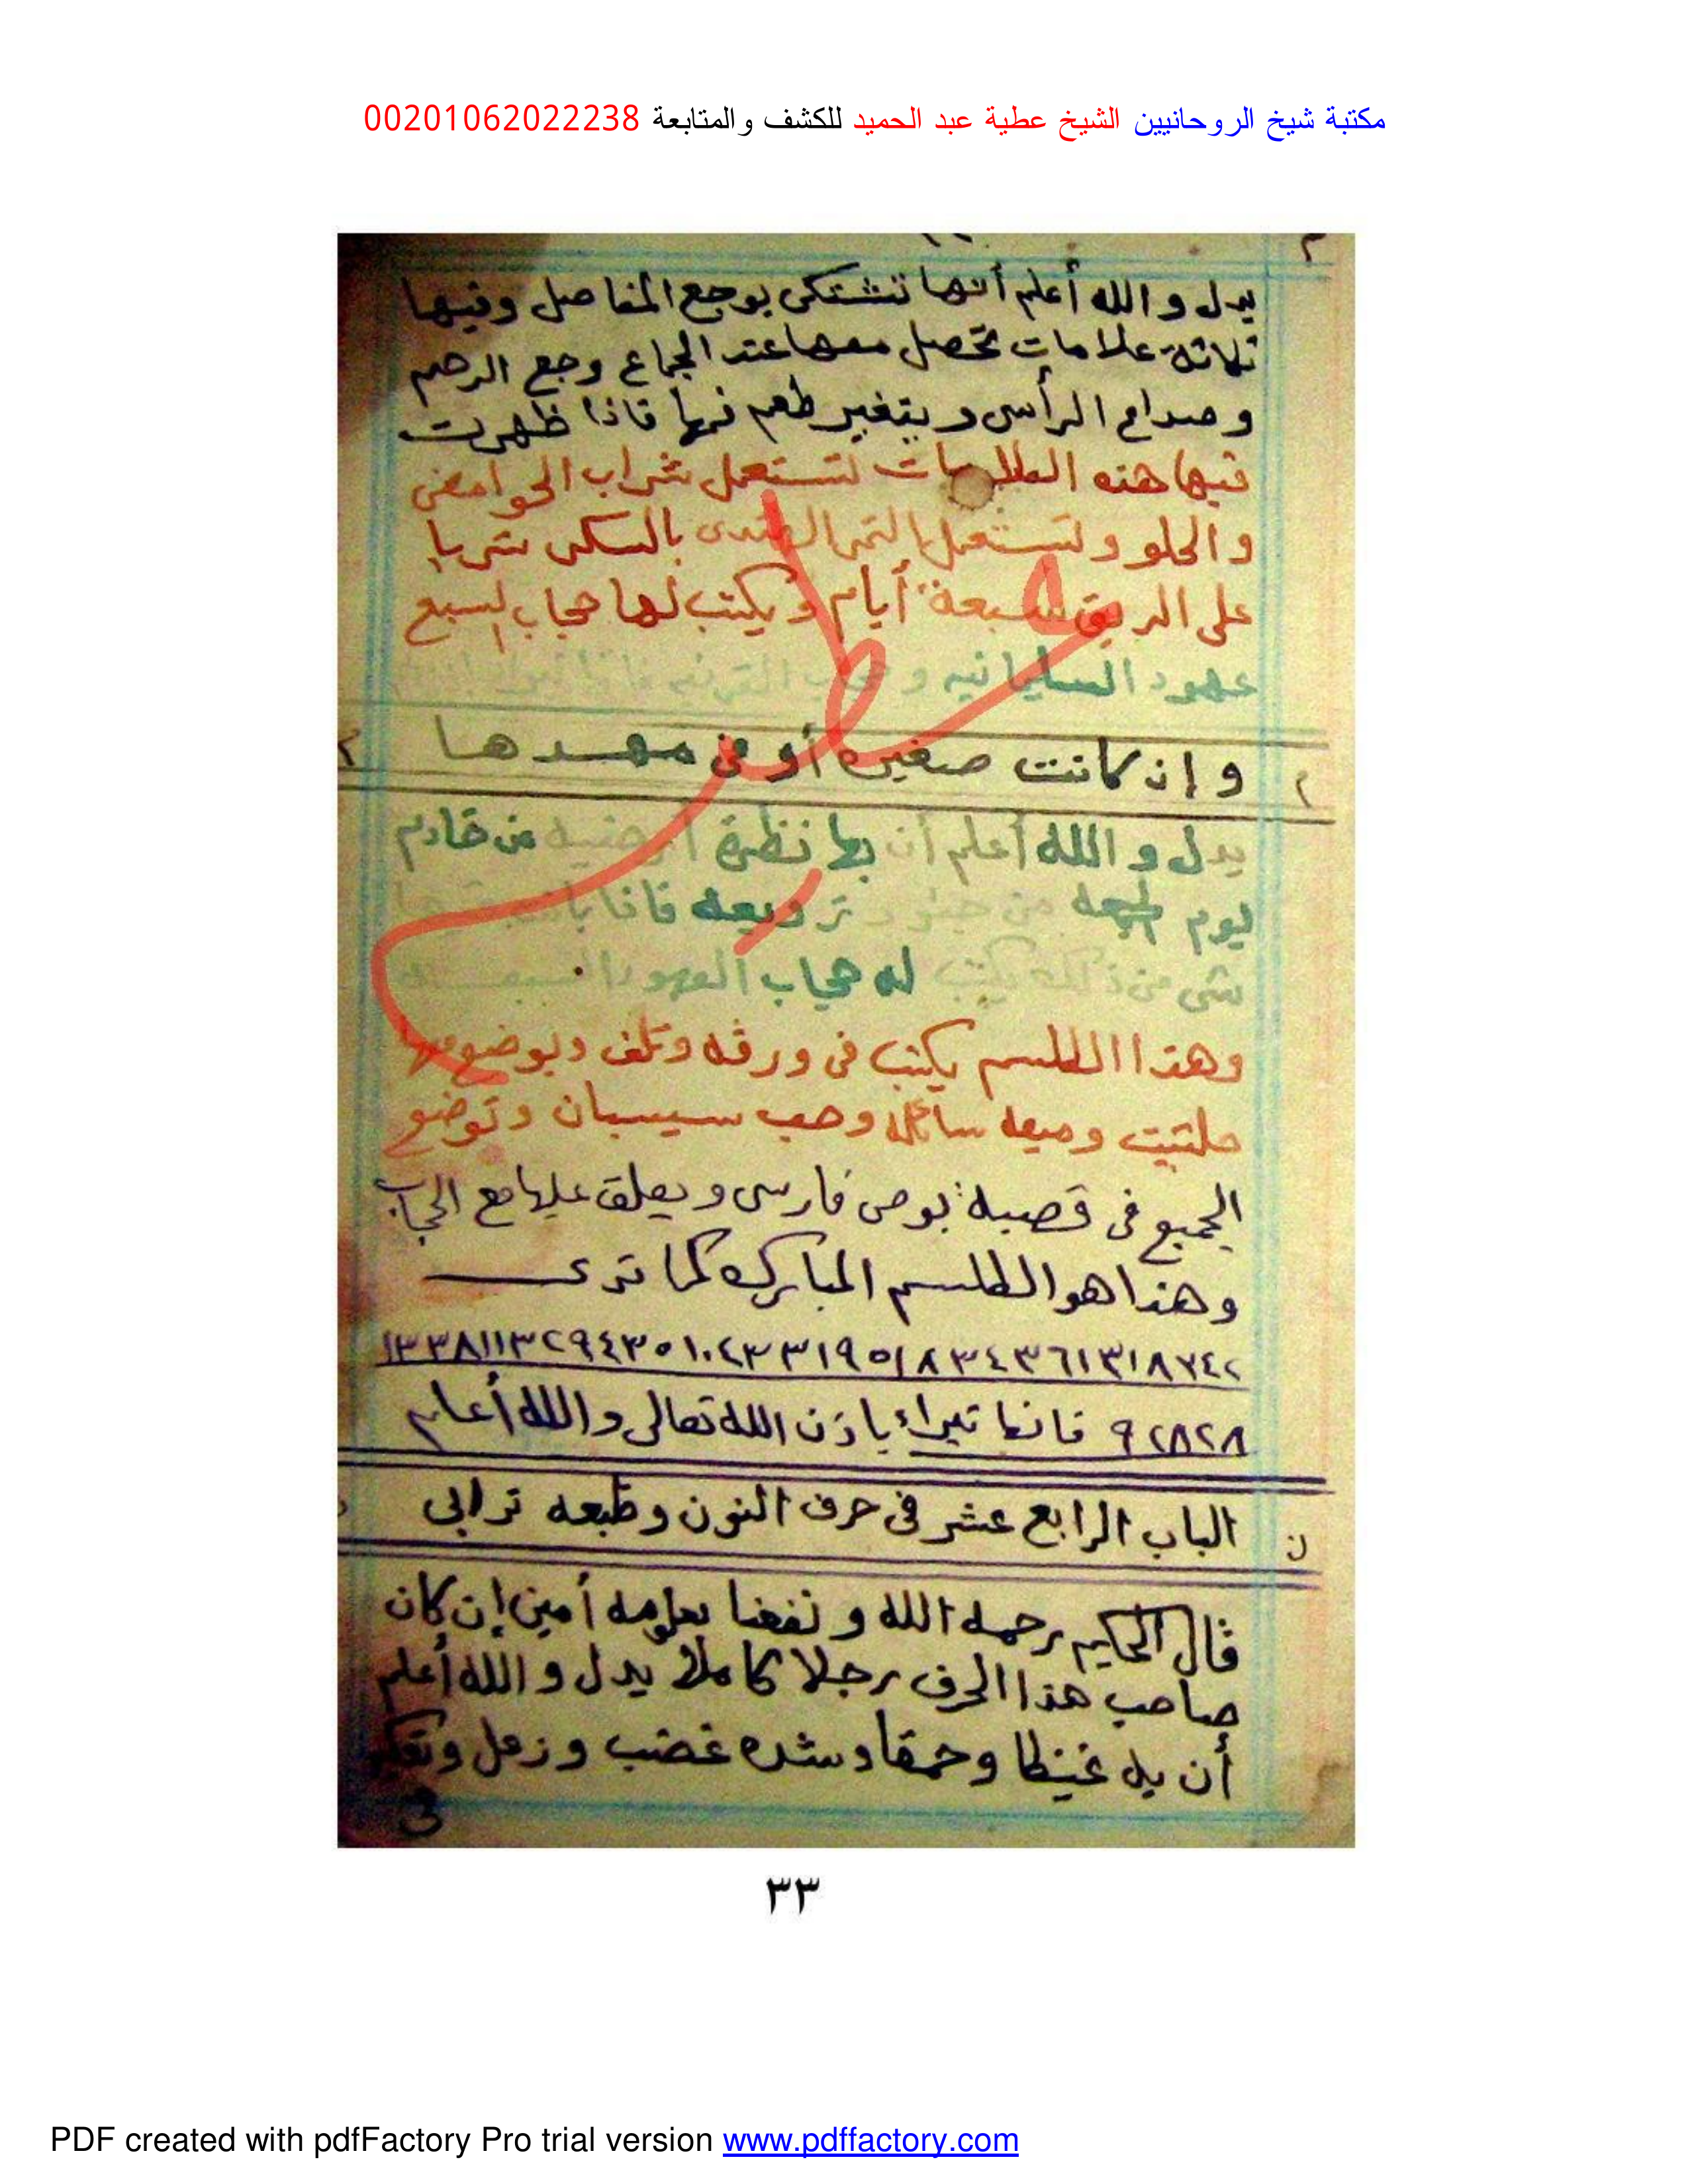 مكتبة شيخ الروحانيين الشيخ عطية عبد الحميد للكشف والمتابعة 00201062022238
يدل والله أعلم أنها تشتكى بوجع المفاصل وفيها
ثلاثة علامات تحصل معها عند الجماع وجع الرحم
وصداع الرأس ويتغير طعم فمها فاذا ظهرت
فيها هذه العلامات تستعمل شراب الحوامض
والحلو وتستعمل التمر الهندى بالسكر شربا
على الريق سبعة أيام ويكتب لها حجاب السبع
عهود السليمانيه و
وإن كانت صغيره أو فى مهدها
يدل والله أعلم أن بها نظرة أرضيه من خادم
يوم الجمعه من ترويعه فاذا
شى من ذلك يكتب له حجاب العهود السبعه
وهذا الطلسم يكتب فى ورقه وتلف ويوضع معها
حلتيت وميعه سائله وحب سيسبان وتوضع
الجميع فى قصبة بوص فارسى ويعلق عليها مع الحجاب
وهذا هو الطلسم المبارك كما ترى
٩٢٨٢٨ فانها تبراء باذن الله تعالى والله أعلم
ن الباب الرابع عشر فى حرف النون وطبعه ترابى
قال الحكيم رحمه الله ونفعنا بعلومه أمين إن كان
صاحب هذا الحرف رجلا كاملا يدل والله أعلم
أن به غيظا وحمقا وشده غضب وزعل
٣٣
PDF created with pdfFactory Pro trial version www.pdffactory.com